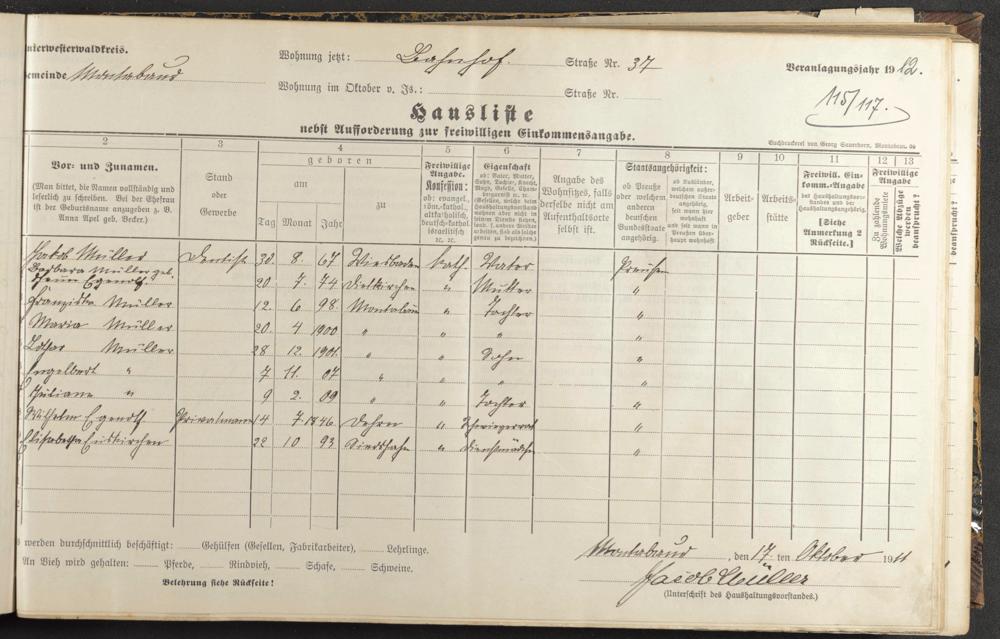 nterwesterwaldkreis.
emeinde Montabaur
Wohnung jetzt: Bahnhof. Straße Nr. 37
Wohnung im Oktober v. Js.: Straße Nr.
Veranlagungsjahr 1912.
115/117.
Hausliste
nebst Aufforderung zur freiwilligen Einkommensangabe.
Buchdruckerei von Georg Sauerborn, Montabaur.
2 3 4 5 6 7 8 9 10 11 12 13
Vor- und Zunamen.
(Man bittet, die Namen vollständig und
leserlich zu schreiben. Bei der Ehefrau
ist der Geburtsname anzugeben z. B.
Anna Apel geb. Becker.)
Stand
oder
Gewerbe
geboren
am
Tag Monat Jahr
zu
Freiwillige
Angabe.
Konfession:
ob: evangel.,
röm.-kathol.,
altkatholisch,
deutsch-kathol.
israelitisch
ꝛc. ꝛc.
Eigenschaft
ob: Vater, Mutter,
Sohn, Tochter, Knecht,
Magd, Geselle,
Angabe des
Wohnsitzes, falls
derselbe nicht am
Aufenthaltsorte
selbst ist.
Staatsangehörigkeit:
ob Preuße
oder welchem
anderen
deutschen
Bundesstaate
angehörig.
ob Ausländer,
welchem außer-
deutschen Staate
angehörig,
seit wann hier
wohnhaft
und seit wann in
Preußen über-
haupt wohnhaft
Arbeit-
geber
Arbeits-
stätte
Freiwill. Ein-
komm.-Angabe
des Haushaltungsvor-
standes und der
Haushaltungsangehörig.
[Siehe
Anmerkung 2
Rückseite.]
Freiwillige
Angabe
Zu zahlende
Wohnungsmiete
Welche Abzüge
werden
beansprucht?
Jakob Müller Dentist 30. 8. 67 Wiesbaden kath. Vater Preußen
Barbara Müller geb.
Egenolf. 20. 7. 74 Dietkirchen " Mutter "
Franziska Müller 12. 6. 98. Montabaur " Tochter "
Maria Müller 20. 4 1900 " " " "
Lothar Müller 28 12. 1901. " " Sohn "
Engelbert " 7 11. 07 " " " "
Juliane " 9 2. 09 " " Tochter "
Wilhelm Egenolf Privatmann 14 7. 1846. Dehrn " "
Elisabetha 22 10 93 " Dienstmädchen "
werden durchschnittlich beschäftigt: Gehülfen (Gesellen, Fabrikarbeiter), Lehrlinge.
An Vieh wird gehalten: Pferde, Rindvieh, Schafe, Schweine.
Belehrung siehe Rückseite!
Montabaur, den 17. ten Oktober 1911
Jacob Müller
(Unterschrift des Haushaltungsvorstandes.)
beansprucht?